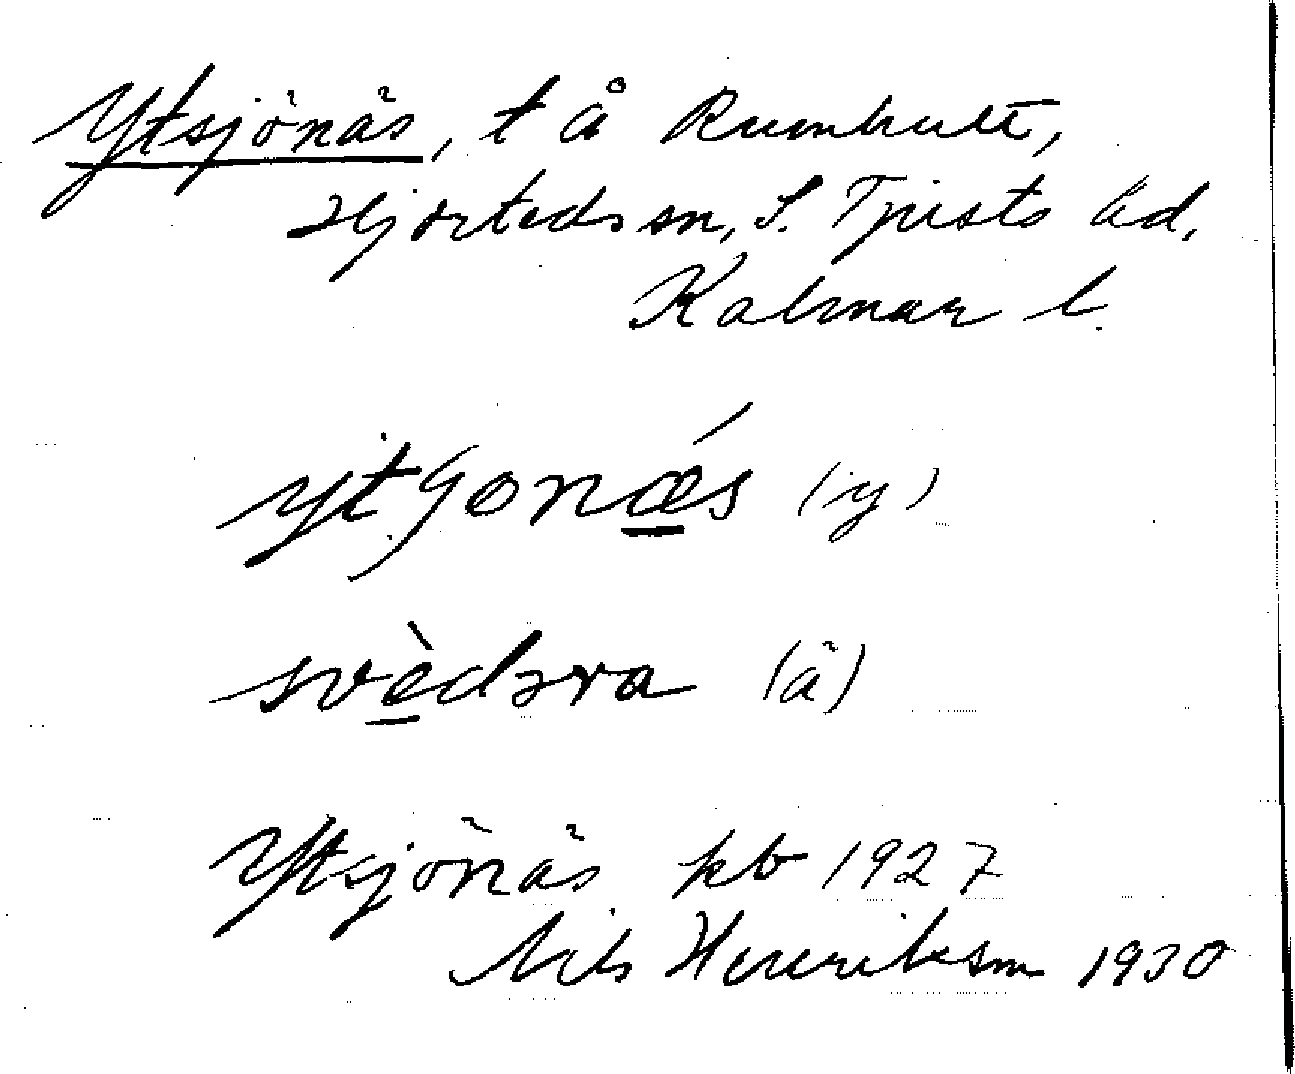 Ytsjönäs, t å Rumhult,
Hjorteds sn, S. Tjusts hd,
Kalmar l.
ytʃonǽs (y)
svèdəra (ä)
Ytsjönäs kb 1927
Nils Henriksson 1930